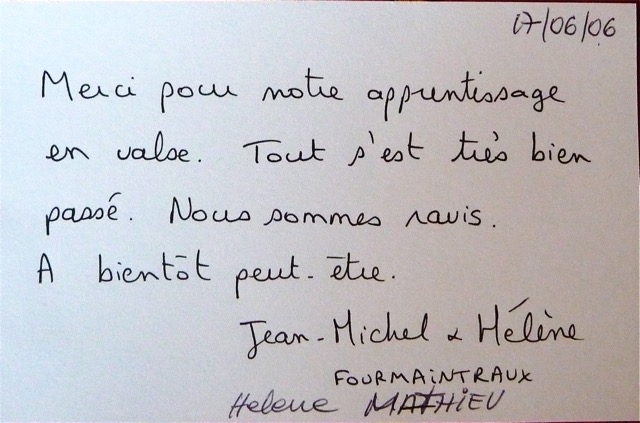 17/06/06
Merci pour notre apprentissage
en valse. Tout s'est très bien
passé. Nous sommes ravis.
A bientôt peut-être.
Jean-Michel & Hélène
FOURMAINTRAUX
Helene MATHIEU